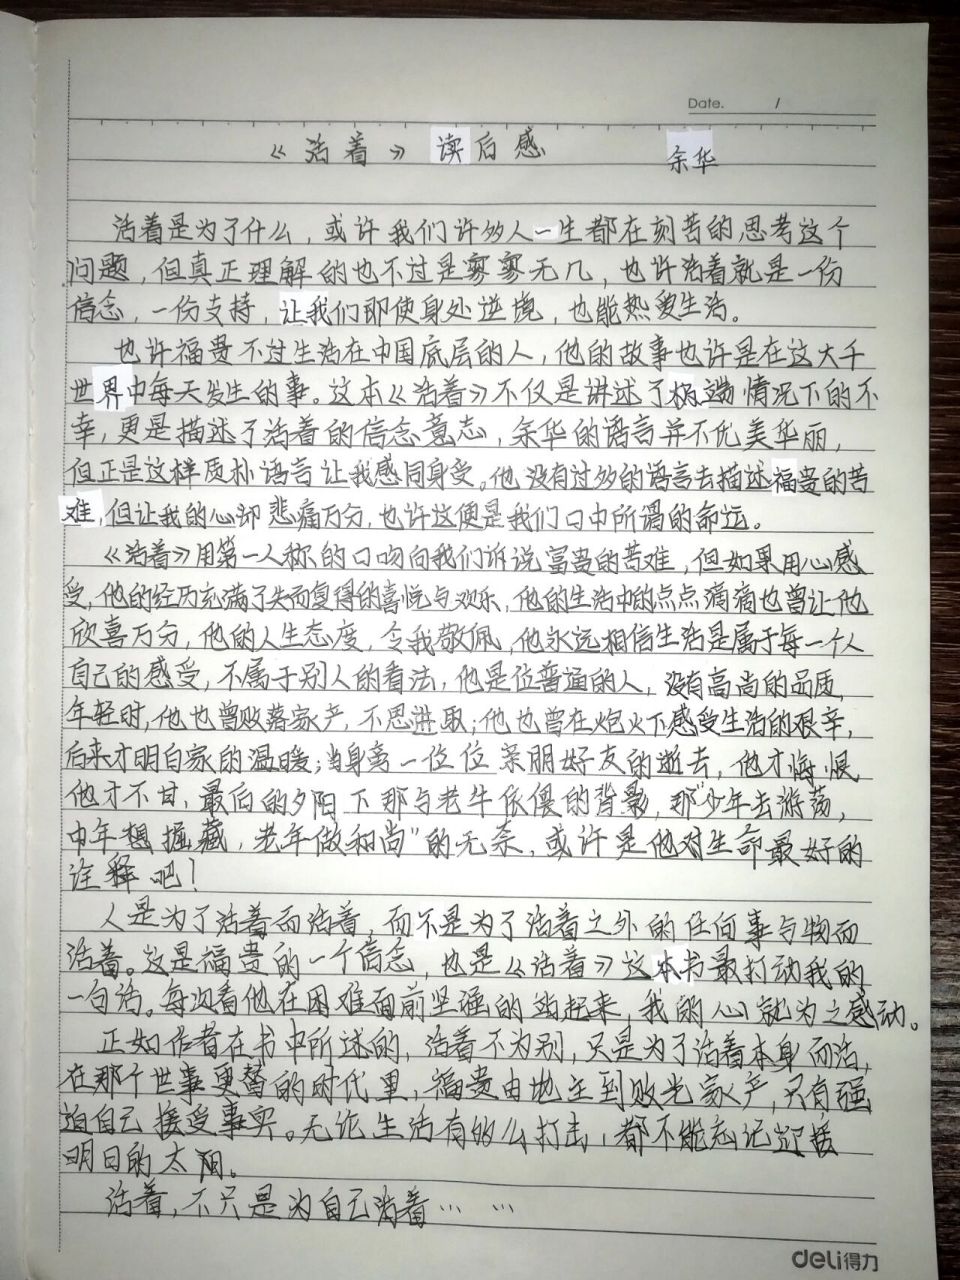 Date. /
《活着》读后感 余华
活着是为了什么，或许我们许多人一生都在刻苦的思考这个
问题，但真正理解的也不过是寥寥无几，也许活着就是一份
信念，一份支持，让我们即使身处逆境，也能热爱生活。
也许福贵不过生活在中国底层的人，他的故事也许是在这大千
世界中每天发生的事。这本《活着》不仅是讲述了极端情况下的不
幸，更是描述了活着的信念意志，余华的语言并不优美华丽，
但正是这样质朴语言让我感同身受。他没有过多的语言去描述福贵的苦
难，但让我的心却悲痛万分，也许这便是我们口中所谓的命运。
《活着》用第一人称的口吻向我们诉说富贵的苦难，但如果用心感
受，他的经历充满了失而复得的喜悦与欢乐，他的生活中的点点滴滴也曾让他
欣喜万分，他的人生态度，令我敬佩，他永远相信生活是属于每一个人
自己的感受，不属于别人的看法，他是位普通的人，没有高尚的品质，
年轻时，他也曾败落家产，不思进取；他也曾在炮火下感受生活的艰辛，
后来才明白家的温暖；当身旁一位位亲朋好友的逝去，他才悔恨
他才不甘，最后的夕阳下那与老牛依偎的背影，那“少年去游荡，
中年想掘藏，老年做和尚”的无奈，或许是他对生命最好的
诠释吧！
人是为了活着而活着，而不是为了活着之外的任何事与物而
活着。这是福贵的一个信念，也是《活着》这本书最打动我的
一句话。每次看他在困难面前坚强的站起来，我的心就为之感动。
正如作者在书中所述的，活着不为别，只是为了活着本身而活，
在那个世事更替的时代里，福贵由地主到败光家产，只有强
迫自己接受事实。无论生活有的么打击，都不能忘记迎接
明日的太阳。
活着，不只是为自己活着……
deli得力